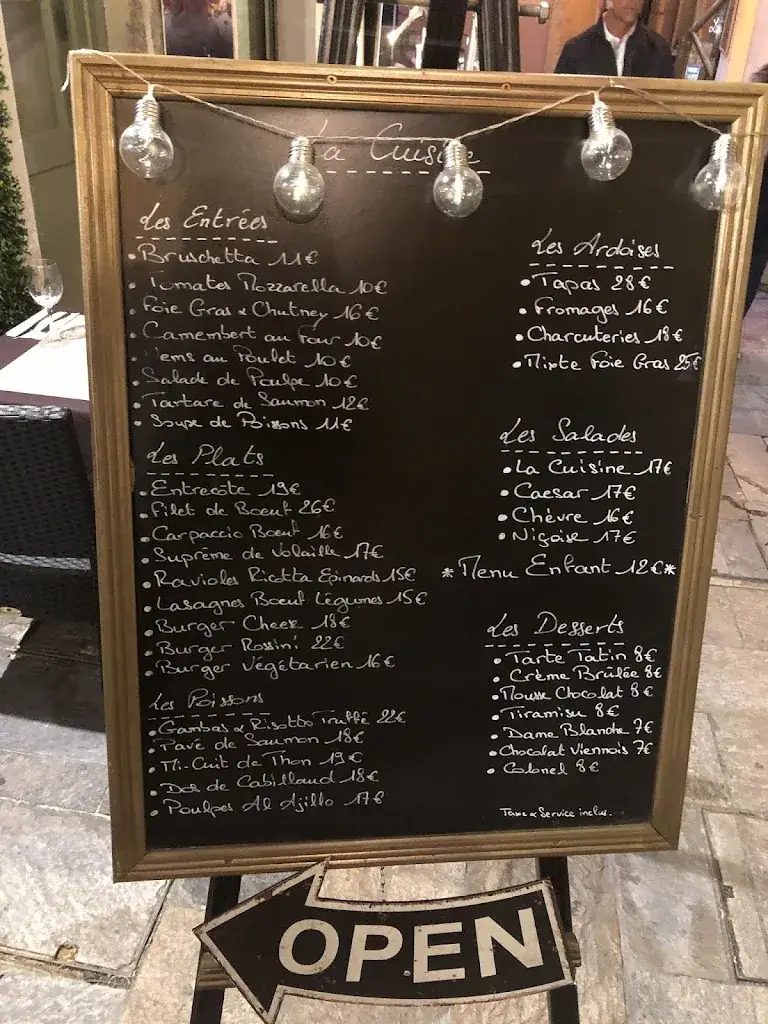 La Cuisine
Les Entrées
• Bruschetta 11€
• Tomates Mozzarella 10€
• Foie Gras & Chutney 16€
• Camembert au Four 10€
• Nems au Poulet 10€
• Salade de Poulpe 10€
• Tartare de Saumon 12€
• Soupe de Poissons 11€
Les Plats
• Entrecôte 19€
• Filet de Boeuf 26€
• Carpaccio Boeuf 16€
• Suprême de Volaille 17€
• Ravioles Ricotta Epinards 15€
• Lasagnes Boeuf Légumes 15€
• Burger Cheese 18€
• Burger Rossini 22€
• Burger Végétarien 16€
Les Poissons
• Gambas & Risotto Truffé 22€
• Pavé de Saumon 18€
• Mi-Cuit de Thon 19€
• Dos de Cabillaud 18€
• Poulpes Al Ajillo 17€
Les Ardoises
• Tapas 28€
• Fromages 16€
• Charcuteries 18€
• Mixte Foie Gras 25€
Les Salades
• La Cuisine 17€
• Caesar 17€
• Chèvre 16€
• Niçoise 17€
*Menu Enfant 12€*
Les Desserts
• Tarte Tatin 8€
• Crème Brûlée 8€
• Mousse Chocolat 8€
• Tiramisu 8€
• Dame Blanche 7€
• Chocolat Viennois 7€
• Colonel 8€
Taxe & Service inclus.
OPEN